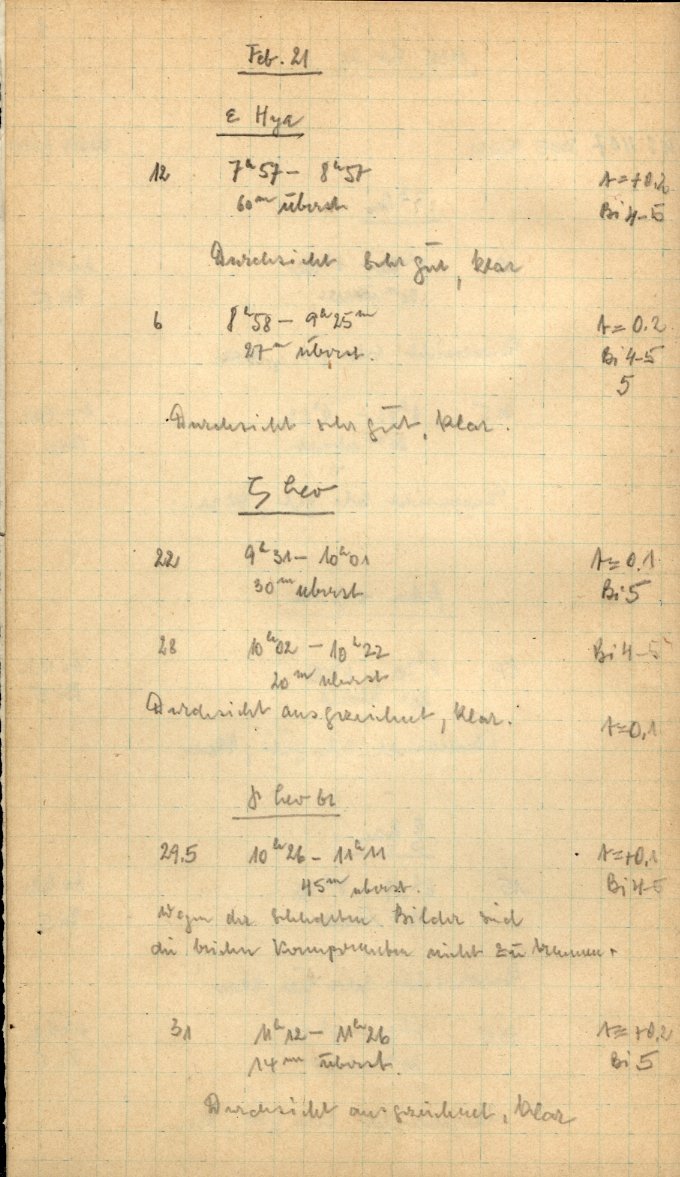 Feb. 21
ε Hya
12 7ʰ57 – 8ʰ57 t = +0.2
60ᵐ überst. Bi 4–5
Durchsicht sehr gut, klar
6 8ʰ58 – 9ʰ25ᵐ t = 0.2
27ᵐ überst. Bi 4–5
5
Durchsicht sehr gut, klar.
ζ Leo
22 9ʰ31 – 10ʰ01 t = 0.1
30ᵐ überst Bi 5
28 10ʰ02 – 10ʰ22 Bi 4–5
20ᵐ überst
Durchsicht ausgezeichnet, klar.
t = 0,1
Leo br
29.5 10ʰ26 – 11ʰ11 t = +0,1
45ᵐ überst. Bi 4–5
wegen der schlechten Bilder sind
die beiden Komponenten nicht zu trennen.
31 11ʰ12 – 11ʰ26 t = +0.2
14ᵐ überst. Bi 5
Durchsicht ausgezeichnet, klar